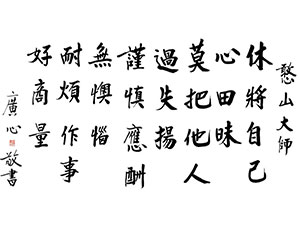 憨山大師
休將自己
心田昧
莫把他人
過失揚
謹慎應酬
無懊惱
耐煩作事
好商量
廣心敬書